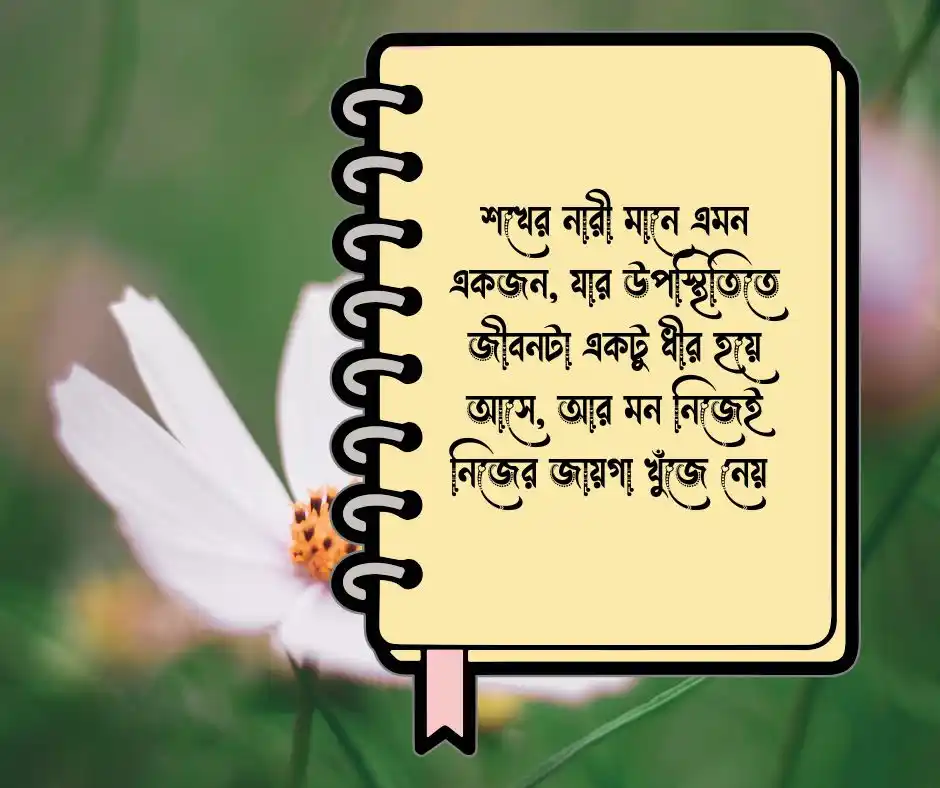 শখের নারী মানে এমন
একজন, যার উপস্থিতিতে
জীবনটা একটু ধীর হয়ে
আসে, আর মন নিজেই
নিজের জায়গা খুঁজে নেয়